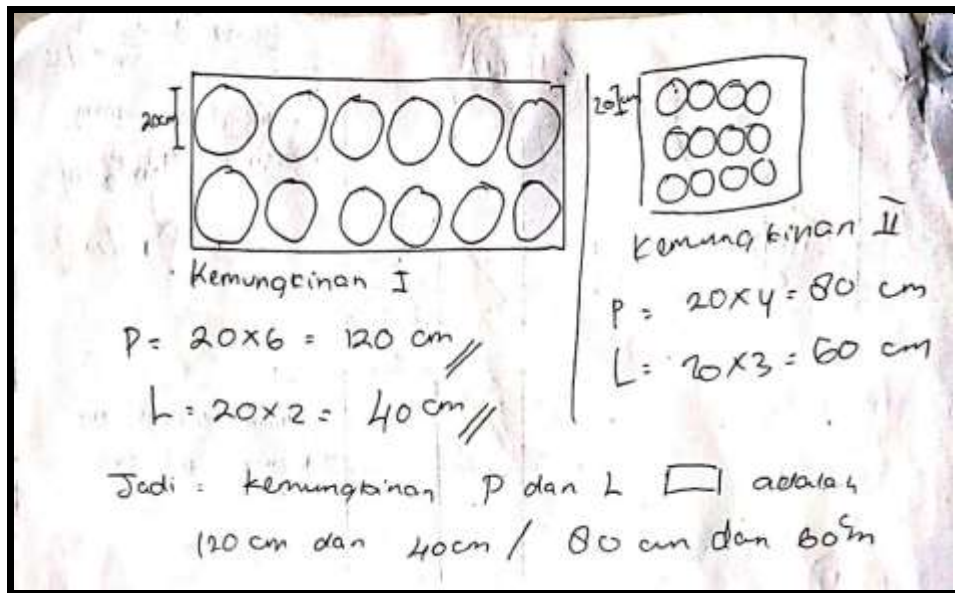 20cm
Kemungkinan I
P = 20x6 = 120 cm //
L = 20x2 = 40 cm //
20 cm
Kemungkinan II
P = 20x4 = 80 cm
L = 20x3 = 60 cm
Jadi = kemungkinan P dan L adalah
120 cm dan 40cm / 80 cm dan 60cm